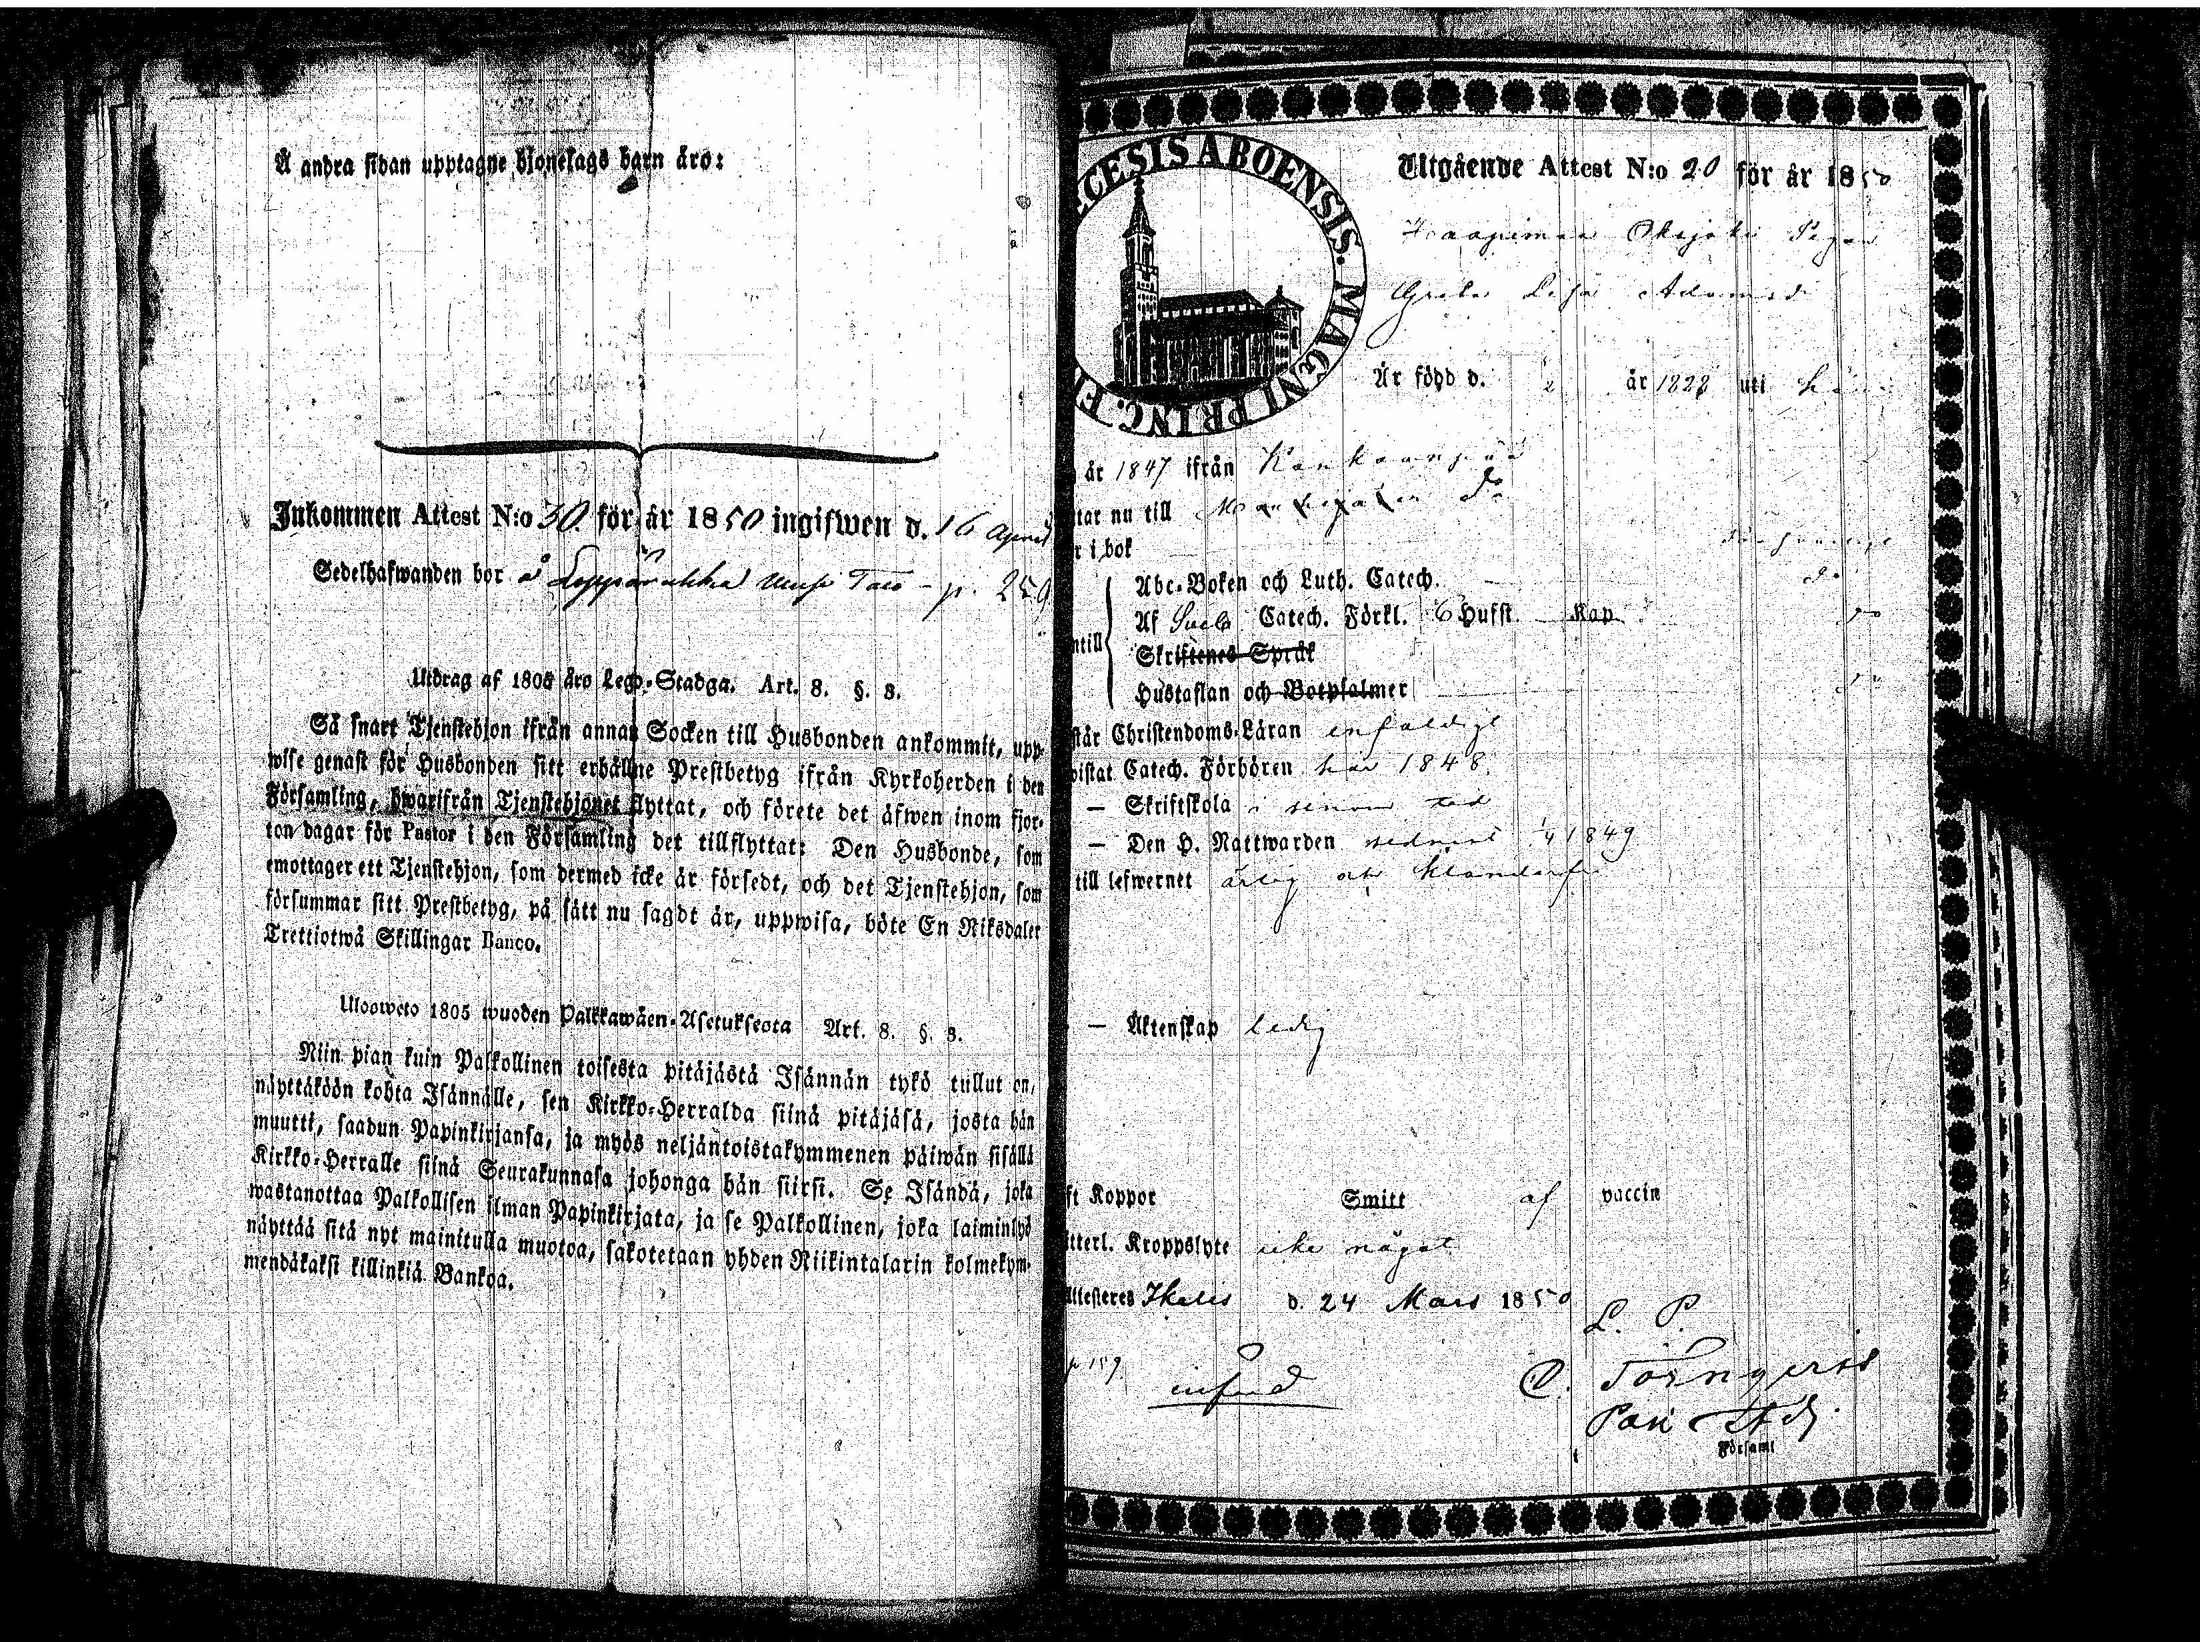 Å andra sidan upptagne hjonelags barn äro:
Inkommen Attest N:o 30 för år 1850 ingifwen d. 16 April
Sedelhafwanden bor å p. 259
Utdrag af 1805 års Lego-Stadga. Art. 8. §. 3.
Så snart Tjenstehjon ifrån annan Socken till Husbonden ankommit, upp-
wise genast för Husbonden sitt erhållne Prestbetyg ifrån Kyrkoherden i den
Församling, hwarifrån Tjenstehjonet flyttat, och förete det äfwen inom fjor-
ton dagar för Pastor i den Församling det tillflyttat: Den Husbonde, som
emottager ett Tjenstehjon, som dermed icke är försedt, och det Tjenstehjon, som
försummar sitt Prestbetyg, på sätt nu sagdt är, uppwisa, böte En Riksdaler
Trettiotwå Skillingar Banco.
Ulosweto 1805 wuoden Palkkawäen-Asetuksesta Art. 8. §. 3.
Niin pian kuin Palkollinen toisesta pitäjästä Isännän tykö tullut on,
näyttäköön kohta Isännälle, sen Kirkko-Herralda siinä pitäjäsä, josta hän
muutti, saadun Papinkirjansa, ja myös neljäntoistakymmenen päiwän sisällä
Kirkko-Herralle siinä Seurakunnasa johonga hän siirsi. Se Isändä, joka
wastanottaa Palkollisen ilman Papinkirjata, ja se Palkollinen, joka laiminlyö
näyttää sitä nyt mainitulla muotoa, sakotetaan yhden Riikintalarin kolmekym-
mendäkaksi killinkiä Bankoa.
CESIS ABOENSIS. MAGNI PRINC. F
Utgående Attest N:o 20 för år 1850
Pigan
Greta Lisa Adamsd
Är född d. 2 år 1828 uti
år 1847 ifrån Kankaanpää
tar nu till
r i bok
Abc-Boken och Luth. Catech.
Af Sweb Catech. Förkl. 6 Hufst. Kap
ntill
Skriftenes Språk
Hustaflan och Botpsalmer
står Christendoms-Läran enfaldigt
vistat Catech. Förhören här 1848
— Skriftskola i sinom tid
— Den H. Nattwarden sednast 1/4 1849
till lefwernet ärlig och
— Äktenskap ledig
ft Koppor Smitt af vaccin
tterl. Kroppslyte icke något
Attesteres Ikalis d. 24 Mars 1850
L. P.
p 159
infört
Församl